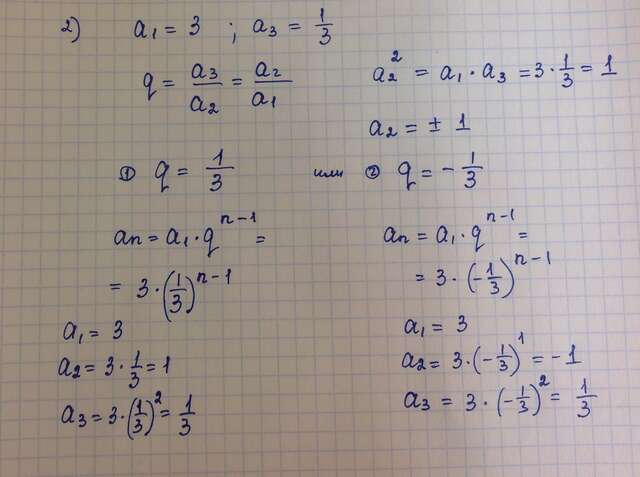 2) a₁ = 3 ; a₃ = 1/3
q = a₃/a₂ = a₂/a₁
a₂² = a₁ · a₃ = 3 · 1/3 = 1
a₂ = ± 1
① q = 1/3 или ② q = - 1/3
aₙ = a₁ · qⁿ⁻¹ =
= 3 · (1/3)ⁿ⁻¹
a₁ = 3
a₂ = 3 · 1/3 = 1
a₃ = 3 · (1/3)² = 1/3
aₙ = a₁ · qⁿ⁻¹ =
= 3 · (-1/3)ⁿ⁻¹
a₁ = 3
a₂ = 3 · (-1/3)¹ = -1
a₃ = 3 · (-1/3)² = 1/3